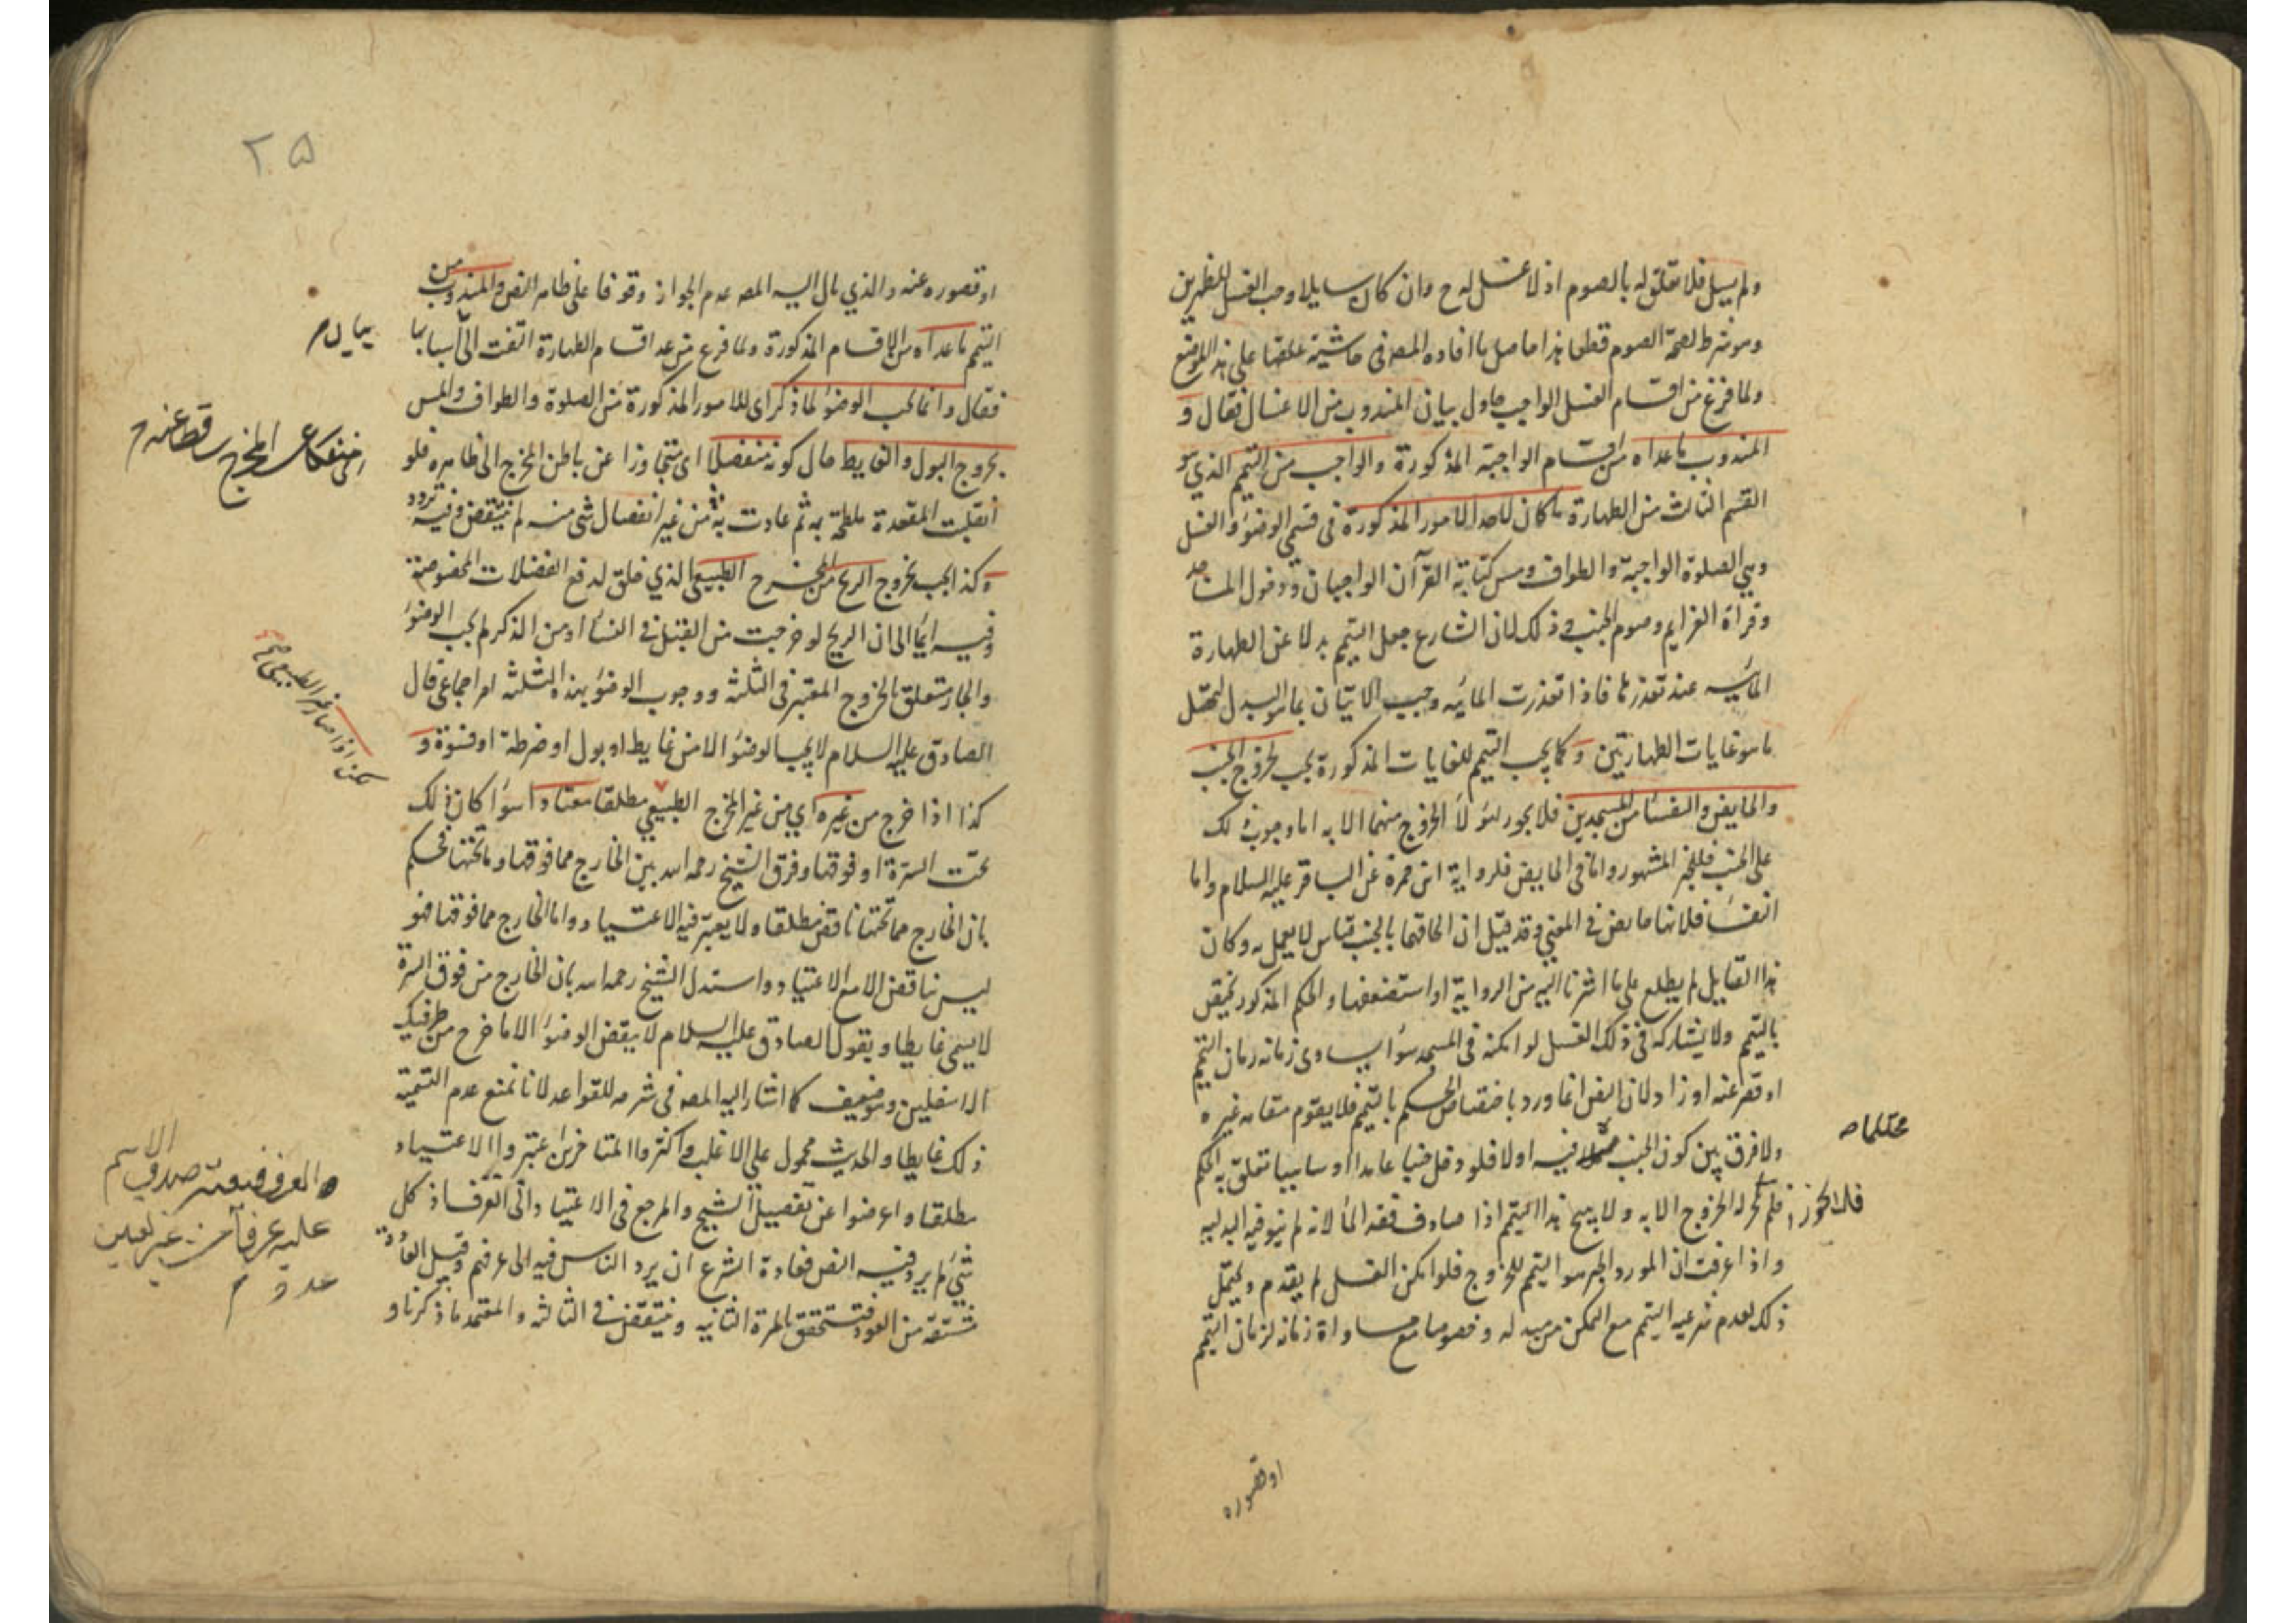 ولم يسل فلا تعلق له بالصوم اذ لا غسل له ح وان كان سايلا وجب الغسل للظهرين
وهو شرط لصحة الصوم قطعا هذا حاصل ما افاده المصه فى حاشيته علقها على هذا الموضع
ولما فرغ من اقسام الغسل الواجب حاول بيان المندوب من الاغسال فقال و
المندوب ما عداه من اقسام الواجبة المذكورة والواجب من التيمم الذي هو
القسم الثالث من الطهارة ما كان لاحد الامور المذكورة فى قسمي الوضوء والغسل
وهي الصلوة الواجبة والطواف ومس كتابة القرآن الواجبان ودخول المساجد
وقراة العزايم وصوم الجنب وذلك لان الشارع جعل التيمم بدلا عن الطهارة
المائيه عند تعذرها فاذا تعذرت المائيه وجب الاتيان بما هو البدل لتحصل
ما هو غايات الطهارتين وكما يجب التيمم للغايات المذكورة يجب لخروج الجنب
والحايض والنفساء من المسجدين فلا يجوز لهؤلاء الخروج منهما الا به اما وجوب ذلك
على الجنب فللخبر المشهور واما فى الحايض فلرواية ابى حمزة عن الباقر عليه السلام واما
النفساء فلانها حايض فى المعنى وقد قيل ان الحاقها بالجنب قياس لا يعمل به وكان
هذا القايل لم يطلع على ما اشرنا اليه من الرواية او استضعفها والحكم المذكور يختص
بالتيمم ولا يشاركه فى ذلك الغسل لو امكنه فى المسجد سواء يساوى زمانه زمان التيمم
او قصر عنه او زاد لان النص انما ورد باختصاص الحكم بالتيمم فلا يقوم مقامه غيره
ولا فرق بين كون الجنب فيه اولا فلو دخل جنبا عامدا او ساهيا تعلق به الحكم
محتلما صح
فلم يجز له الخروج الا به ولا يبيح هذا التيمم اذا صادف فقد الماء لانه لم ينو فيه البدليه
فلا يجوز
واذا عرفت ان المورد الخبر هو التيمم للخروج فلو امكن الغسل لم يقدم ويحتمل
ذلك لعدم شرعيه التيمم مع التمكن من مبدله وخصوصا مع مساواة زمانه لزمان التيمم
او قصوره
٢٥
او قصوره عنه والذي مال اليه المصه عدم الجواز وقوفا على ظاهر النص والمندوب من
التيمم ما عداه من الاقسام المذكورة ولما فرغ من عد اقسام الطهارة التفت الى اسبابها
بيان م
فقال وانما يجب الوضوء لما ذكر اى للامور المذكورة من الصلوة والطواف والمس
بخروج البول والغايط حال كونه منفصلا اى متجاوزا عن باطن المخرج الى ظاهره فلو
المخرج ساقط عنه م
انقلبت المقعدة ملطخة به ثم عادت به من غير انفصال شى منه لم ينتقض وفيه تردد
وكذا يجب بخروج الريح من المخرج الطبيعى الذي خلق لدفع الفضلات المخصوصة
وفيه ايماء الى ان الريح لو خرجت من القبل فى النساء او من الذكر لم يجب الوضوء
والجار متعلق بالخروج المعتبر فى الثلثه ووجوب الوضوء بهذه الثلثه امر اجماعى قال
الصادق عليه السلام لا يجب الوضوء الا من غايط او بول او ضرطة او فسوة و
لكن اذا صار غير الطبيعى
كذا اذا خرج من غيره اي من غير المخرج الطبيعي مطلقا معتادا سواء كان ذلك
تحت السرة او فوقها وفرق الشيخ رحمه الله بين الخارج مما فوقها وما تحتها فحكم
بان الخارج مما تحتها ناقض مطلقا ولا يعتبر فيه الاعتياد واما الخارج مما فوقها فهو
ليس بناقض الا مع الاعتياد واستدل الشيخ رحمه الله بان الخارج من فوق السرة
لا يسمى غايطا وبقول الصادق عليه السلام لا ينقض الوضوء الا ما خرج من طرفيك
الاسفلين وهو ضعيف كما اشار اليه المصه فى شرحه للقواعد لانا نمنع عدم التسمية
ذلك غايطا والحديث محمول على الاغلب واكثر المتاخرين اعتبروا الاعتياد
مطلقا واعرضوا عن تفصيل الشيخ والمرجع فى الاعتياد الى العرف اذ كل
والعرف فيه صدق الاسم
عليه عرفا من غير تعيين
عدد م
شئ لم يرد فيه النص فعادة الشرع ان يرد الناس فيه الى عرفهم وقيل العادة
مشتقة من العود فتتحقق بالمرة الثانيه وينتقض فى الثالثه والمعتمد ما ذكرنا و